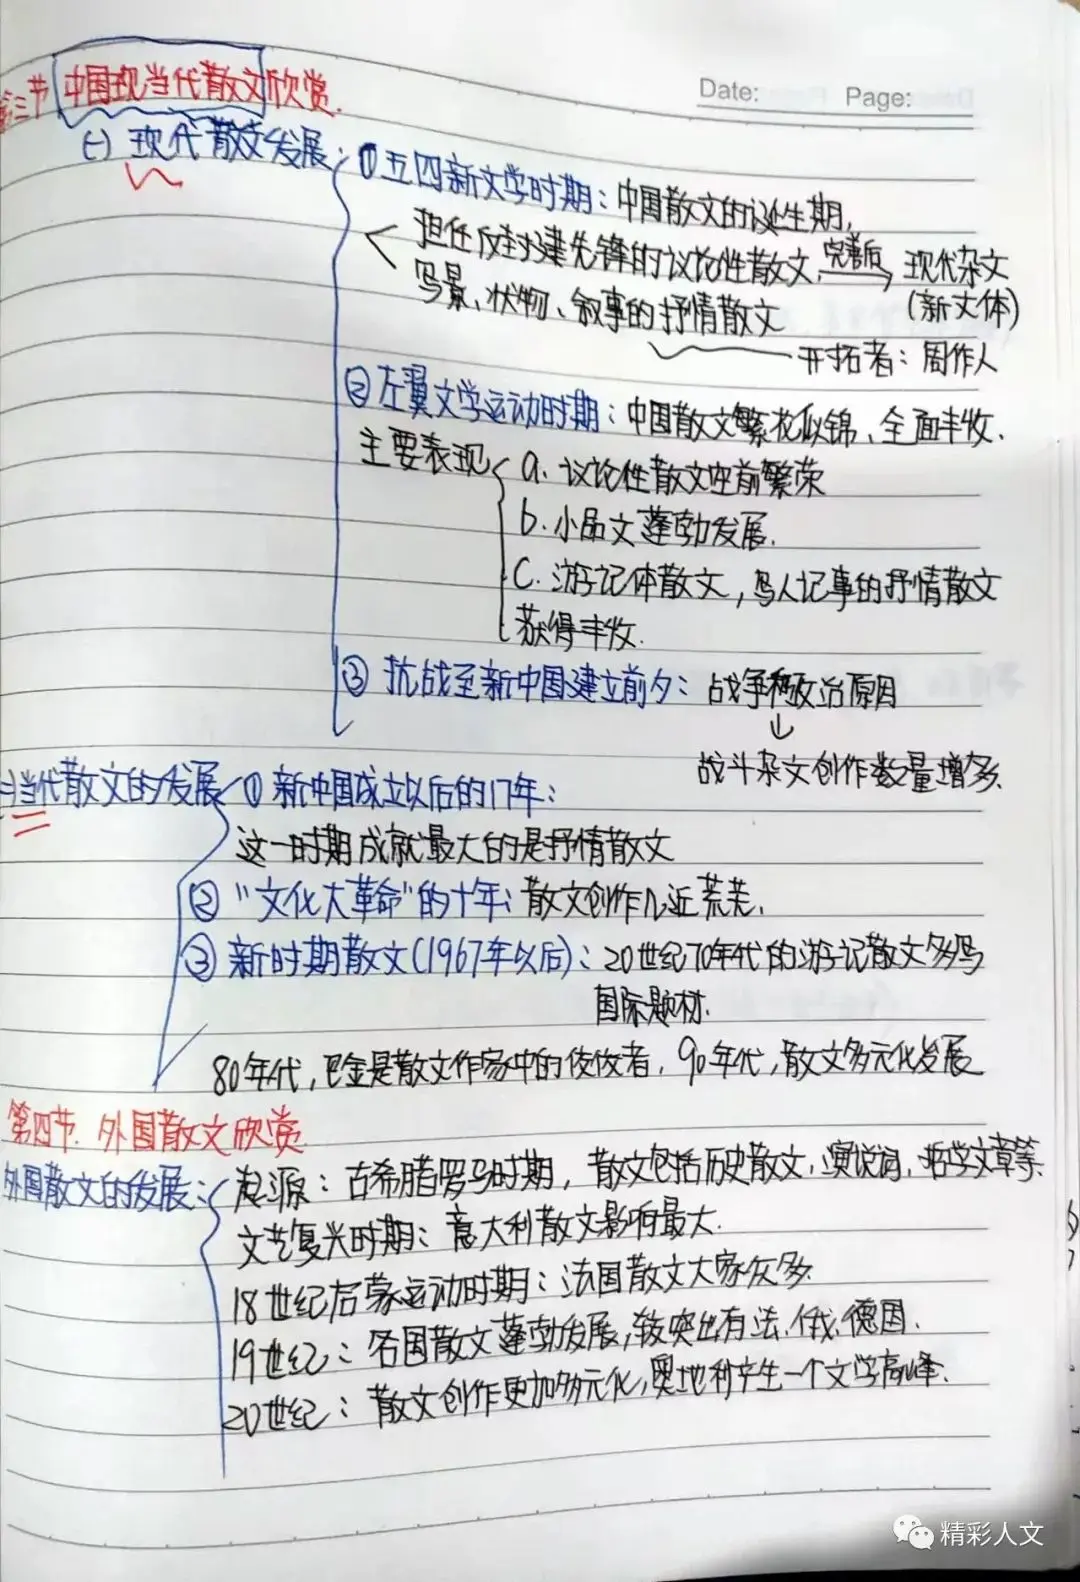 Date: Page:
第三节 中国现当代散文欣赏.
(一) 现代散文发展: ①五四新文学时期: 中国散文的诞生期,
担任反封建先锋的议论性散文 完善后 现代杂文
写景、状物、叙事的抒情散文 (新文体)
开拓者: 周作人
②左翼文学运动时期: 中国散文繁花似锦、全面丰收.
主要表现 a. 议论性散文空前繁荣
b. 小品文蓬勃发展.
c. 游记体散文, 写人记事的抒情散文
获得丰收.
③ 抗战至新中国建立前夕: 战争和政治原因
战斗杂文创作数量增多.
(二)当代散文的发展 ① 新中国成立以后的17年:
这一时期成就最大的是抒情散文
② “文化大革命”的十年: 散文创作几近荒芜.
③ 新时期散文(1967年以后): 20世纪70年代的游记散文多写
国际题材.
80年代, 巴金是散文作家中的佼佼者, 90年代, 散文多元化发展
第四节. 外国散文欣赏.
外国散文的发展: 起源: 古希腊罗马时期, 散文包括历史散文, 演说词, 哲学文章等.
文艺复兴时期: 意大利散文影响最大.
18世纪启蒙运动时期: 法国散文大家众多.
19世纪: 各国散文蓬勃发展, 较突出有法、俄、德国.
20世纪: 散文创作更加多元化, 奥地利产生一个文学高峰.
精彩人文